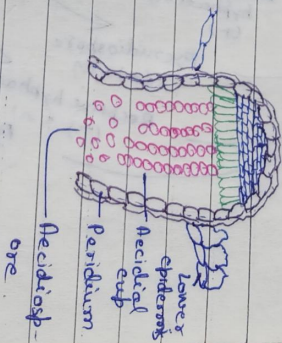 Lower
epidermis
Aecidial
cup
Peridium
Aecidiosp-
ore